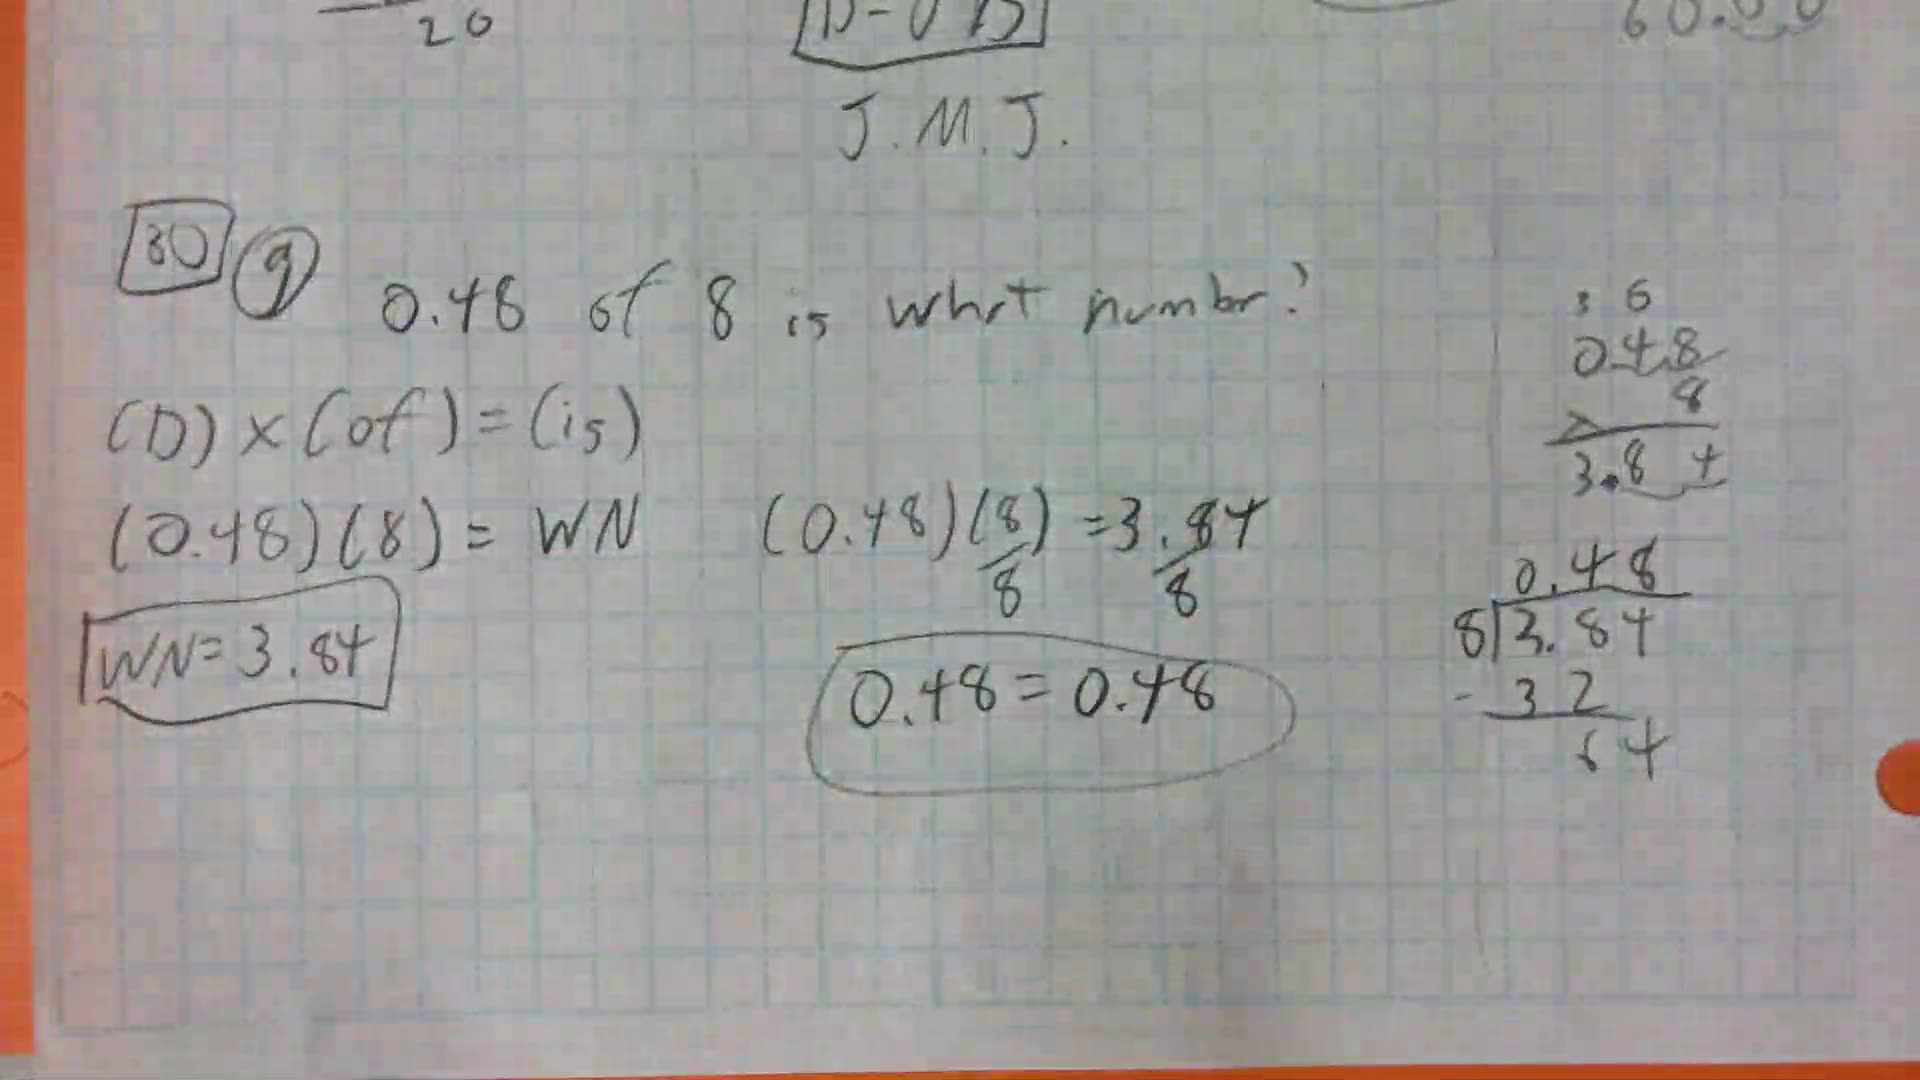 20
60.00
J.M.J.
30 9 0.48 of 8 is what numbr?
(D) × (of) = (is)
(0.48)(8) = WN
WN = 3.84
(0.48)(8) = 3.84
8 8
0.48 = 0.48
3 6
0.48
× 8
3.8 4
0.48
8 3.84
- 32
64